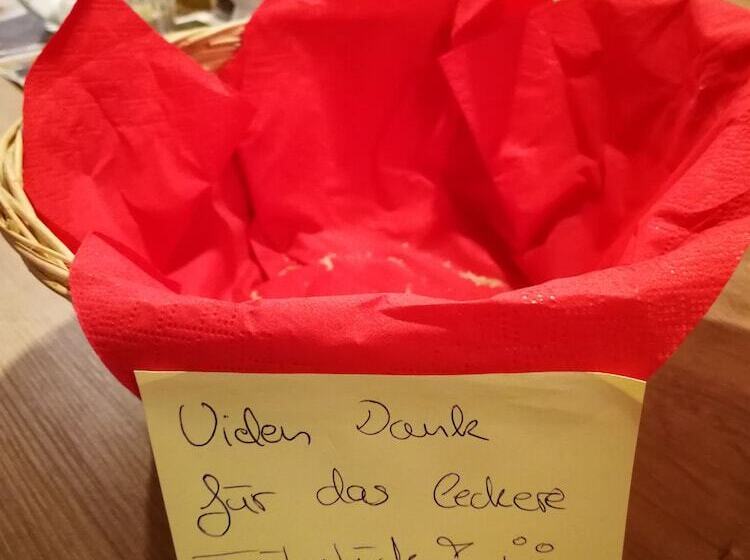 Vielen Dank
für das leckere